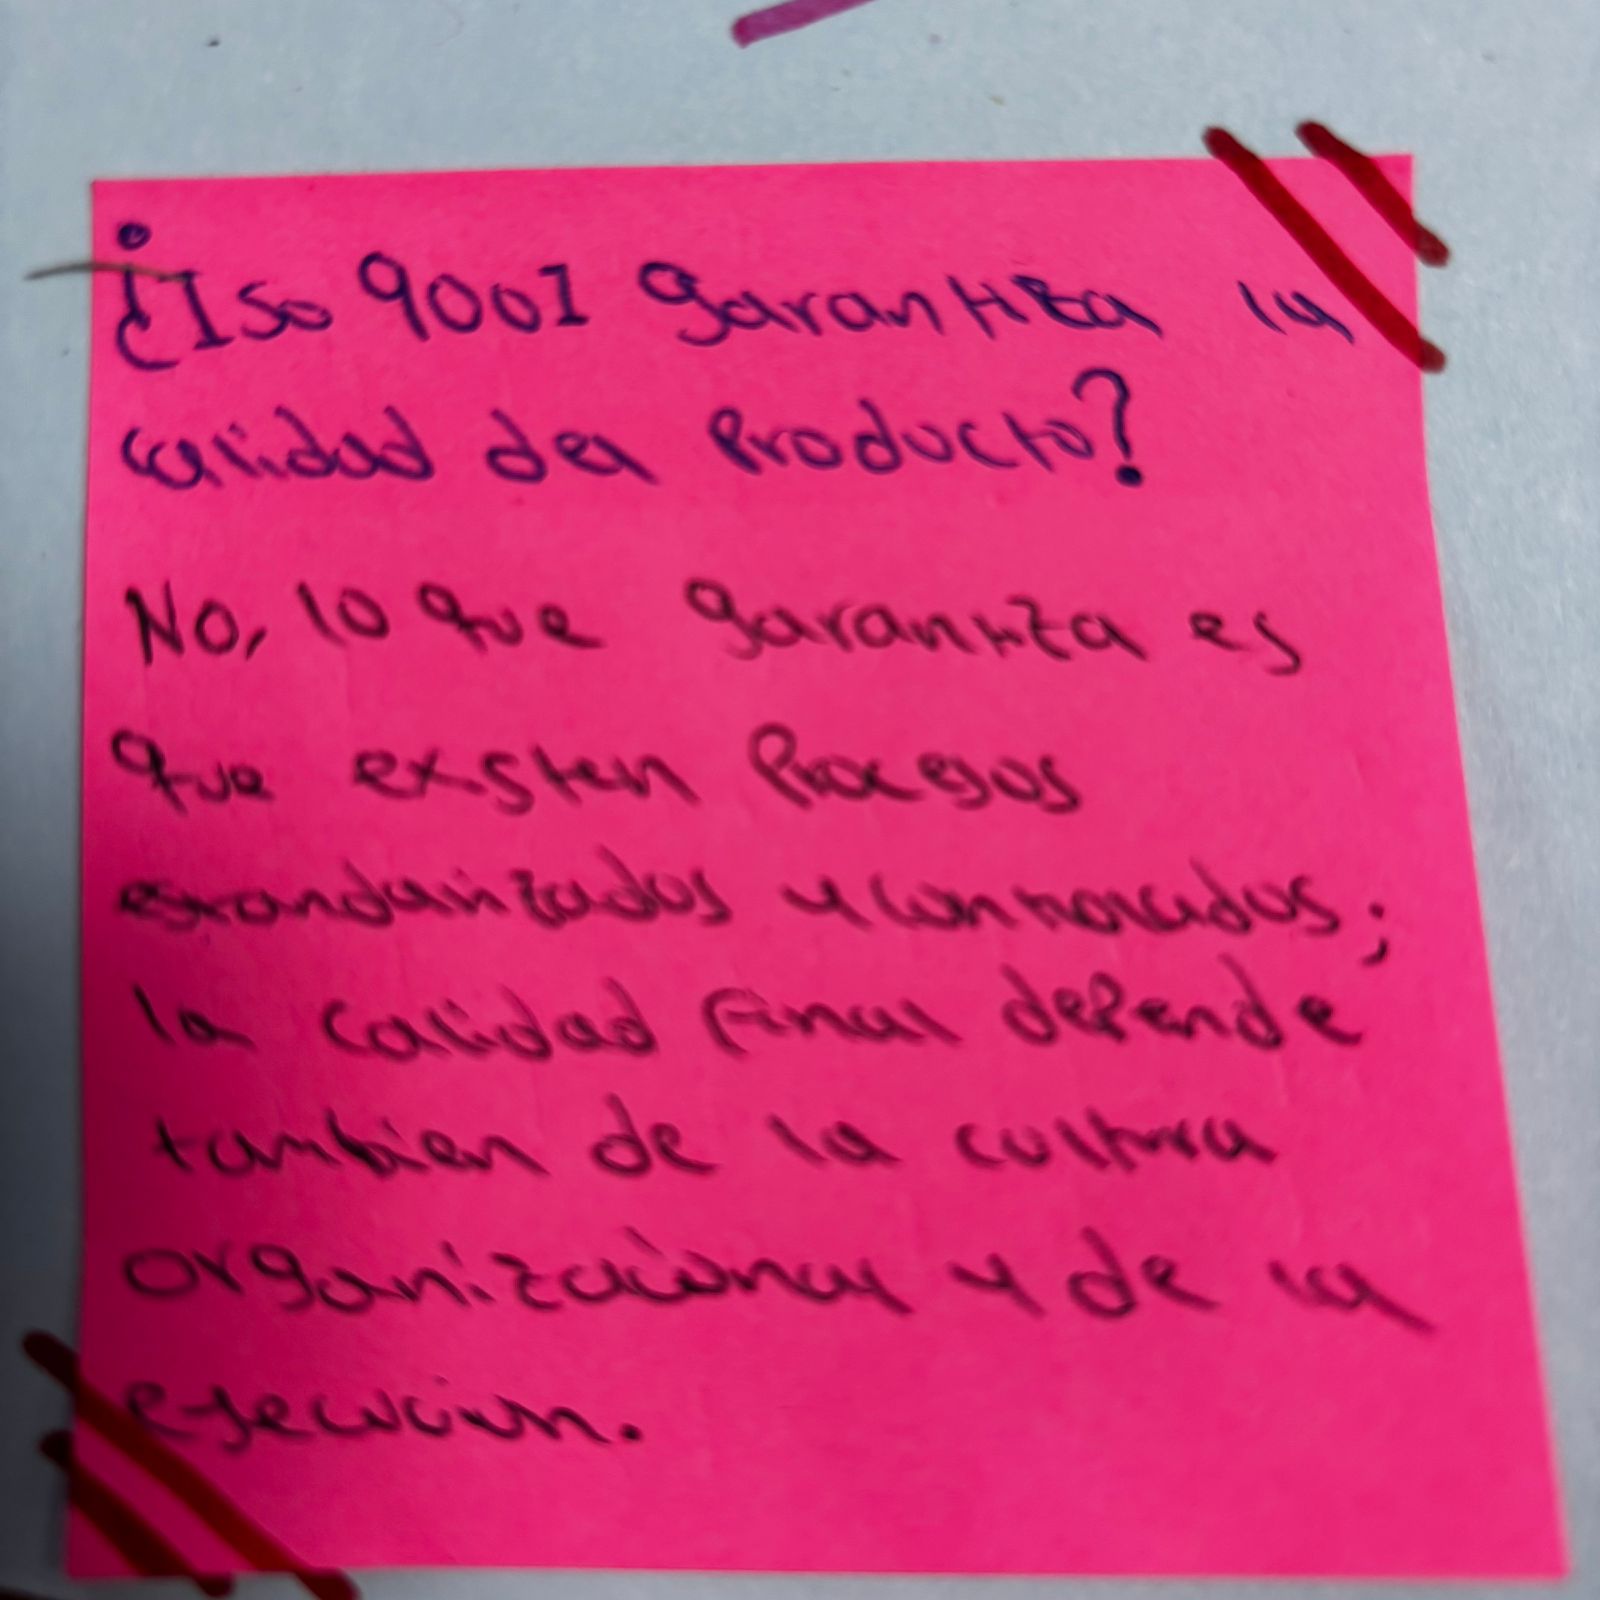 ¿Iso 9001 garantiza la
calidad del Producto?
No, lo que garantiza es
que existen Procesos
estandarizados y controlados;
la calidad final depende
tambien de la cultura
organizacional y de la
ejecucion.